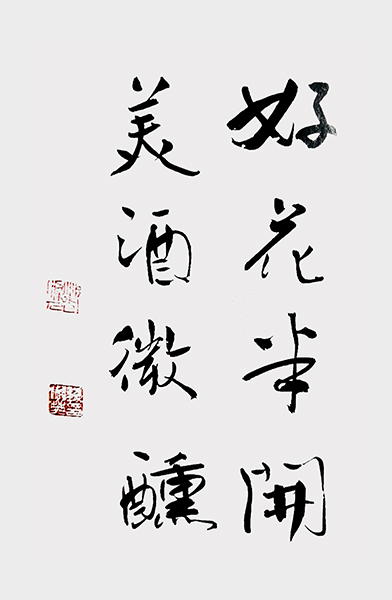 好花半開
美酒微醺